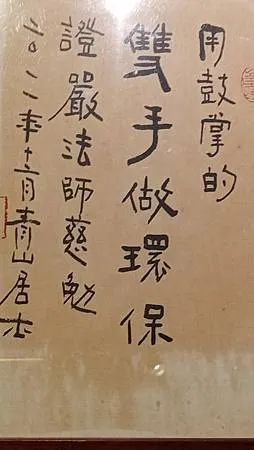 用鼓掌的
雙手做環保
證嚴法師慈勉
二〇一二年十二月青山居士